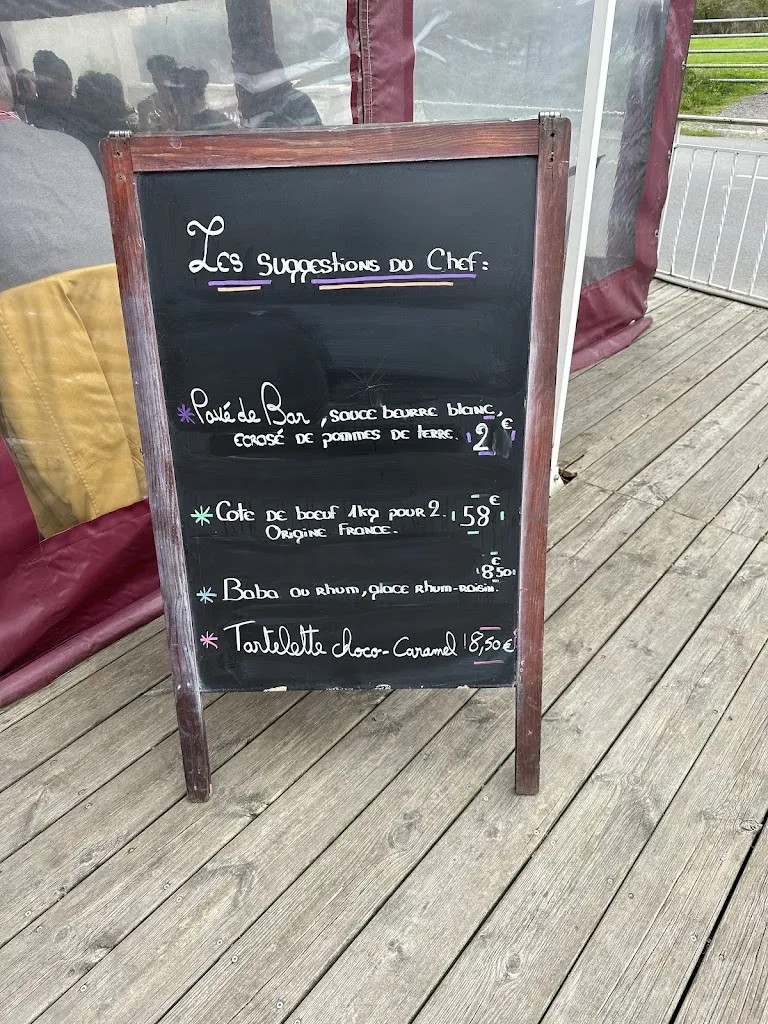 Les Suggestions du Chef:
Pavé de Bar, sauce beurre blanc,
écrasé de pommes de terre. 2 €
Cote de boeuf 1kg pour 2. 58€
Origine France.
8,50€
Baba au rhum, glace rhum-raisin.
Tartelette choco-Caramel 8,50€